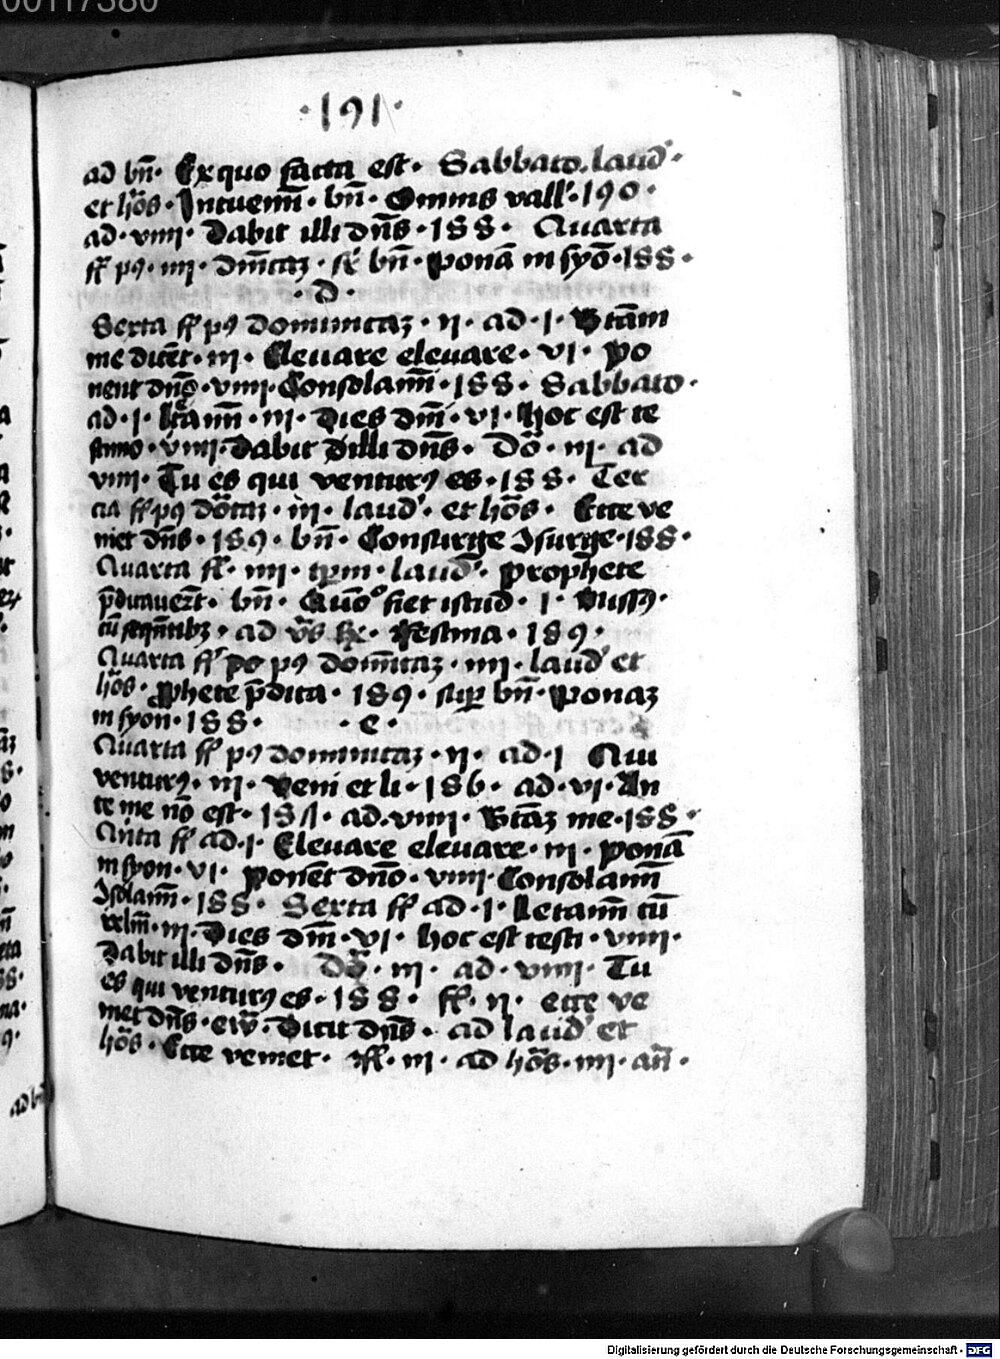 00117380
·191·
ad bn̄· Ex quo facta est· Sabbato· laud̕·
et hōs· Intuemī· bn̄· Omnis vall̕·190·
ad·viiii· Dabit illi dn̄s·188· Quarta
ff p9·iiii· dn̄icaʒ· sr̄ bn̄· Ponā in syō·188·
·d·
Sexta ff p9 dominicaʒ·ii· ad·i· Btām
me dicēt·iii· Elevare elevare·vi· Po
nent dn̄o·viiii· Consolamī·188· Sabbato·
ad·i· letāmī·iii· Dies dn̄i·vi· hoc est te
stimo·viiii· Dabit illi dn̄s· Dō·iii· ad
viiii· Tu es qui ventur9 es·188· Ter
cia ff p9 dōicaʒ·iii· laud̕· et hōs· Ecce ve
niet dn̄s·189· bn̄· Consurge 9surge·188·
Quarta ff·iiii· tp̄m· laud̕· Prophete
p̄dicavert̄· bn̄· Quō fiet istud·1· Missꝫ·
cū seqn̄tibʒ· ad· Festina·189·
Quarta ff po p9 domīcaʒ·iiii· laud̕ et
hōs· Prophete p̄dica·189· sup̄ bn̄· Ponaʒ
in syon·188· ·e·
Quarta ff p9 dominicaʒ·ii· ad·i Qui
ventur9·iii· Veni et li·186· ad·vi· An
te me nō est·187· ad·viiii· Btāʒ me·188·
Qn̄ta ff ad·i· Elevare elevare·iii· Ponā
in syon·vi· Ponēt dn̄o·viiii· Consolamī
9solamī·188· Sexta ff ad·i· Letamī cū
irlm̄·iii· Dies dn̄i·vi· hoc est testi·viiii·
Dabit illi dn̄s· Dō·iii· ad·viiii· Tu
es qui ventur9 es·188· ff·ii· ecce ve
niet dn̄s· ew̄· Dicit dn̄s· ad laud̕ et
hōs· Ecce veniet· ff·iii· ad hōs·iiii· an̄·
ad bn̄
Digitalisierung gefördert durch die Deutsche Forschungsgemeinschaft - DFG